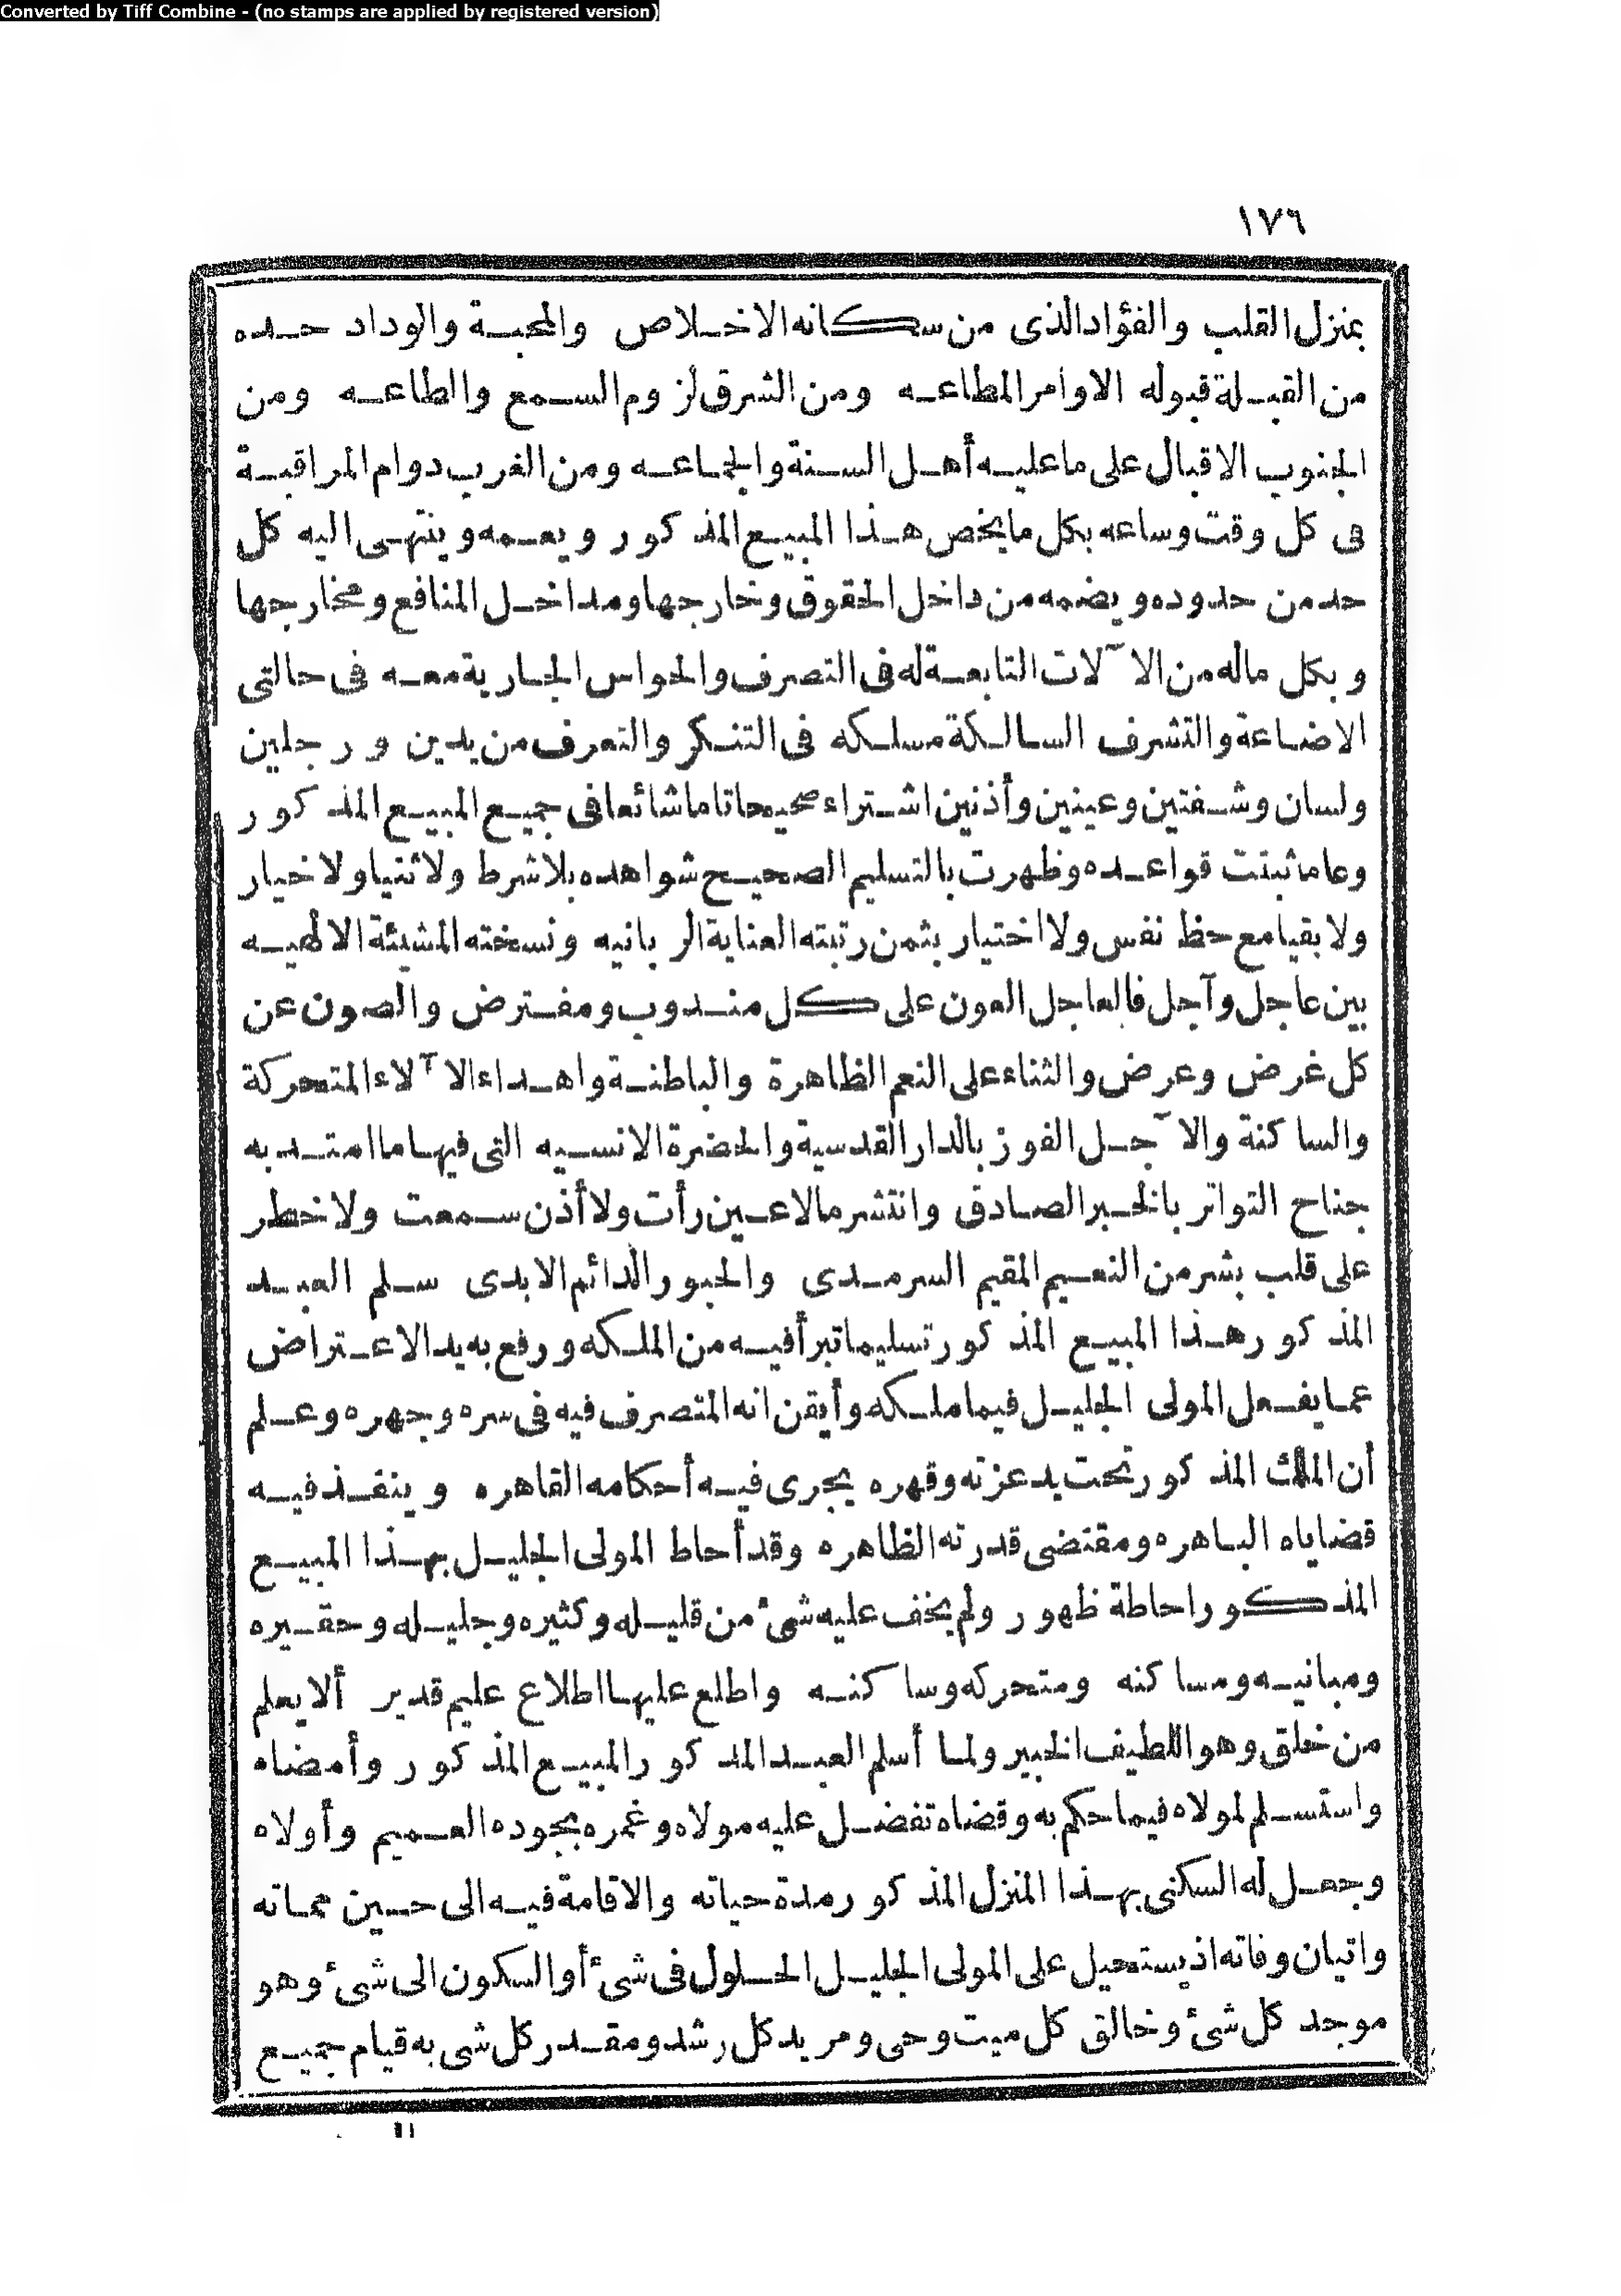 Converted by Tiff Combine - (no stamps are applied by registered version)
١٧٦
بمنزل القلب والفؤاد الذى من سكانه الاخلاص والمحبة والوداد حده
من القبلة قبوله الاوامر المطاعه ومن الشرق لزوم السمع والطاعه ومن
الجنوب الاقبال على ما عليه أهل السنة والجماعه ومن الغرب دوام المراقبة
فى كل وقت وساعه بكل ما يخص هذا المبيع المذكور ويعمه وينتهى اليه كل
حد من حدوده ويضمه من داخل الحقوق وخارجها ومداخل المنافع ومخارجها
وبكل ماله من الآلات التابعة له فى التصرف والحواس الجارية معه فى حالتى
الاضاعة والتشرف السالكة مسلكه فى التنكر والتعرف من يدين ورجلين
ولسان وشفتين وعينين وأذنين اشتراء صحيحا تاما شائعا فى جميع المبيع المذكور
وعاما ثبتت قواعده وظهرت بالتسليم الصحيح شواهده بلا شرط ولا ثنيا ولا خيار
ولا بقيا مع حظ نفس ولا اختيار بثمن رتبته العناية الربانيه ونسخته المشيئة الالهيه
بين عاجل وآجل فالعاجل العون على كل مندوب ومفترض والصون عن
كل غرض وعرض والثناء على النعم الظاهرة والباطنة واهداء الآلاء المتحركة
والساكنة والآجل الفوز بالدار القدسية والحضرة الانسيه التى فيها ما امتد به
جناح التواتر بالخبر الصادق وانتشر مالا عين رأت ولا أذن سمعت ولا خطر
على قلب بشر من النعيم المقيم السرمدى والحبور الدائم الابدى سلم العبد
المذكور هذا المبيع المذكور تسليما تبرأ فيه من الملكه ورفع به يد الاعتراض
عما يفعل المولى الجليل فيما ملكه وأيقن انه المتصرف فيه فى سره وجهره وعلم
أن الملك المذكور تحت يد عزته وقهره يجرى فيه أحكامه القاهره وينفذ فيه
قضاياه الباهره ومقتضى قدرته الظاهره وقد أحاط المولى الجليل بهذا المبيع
المذكور احاطة ظهور ولم يخف عليه شئ من قليله وكثيره وجليله وحقيره
ومبانيه ومساكنه ومتحركه وساكنه واطلع عليها اطلاع عليم قدير ألا يعلم
من خلق وهو اللطيف الخبير ولما أسلم العبد المذكور المبيع المذكور وأمضاه
واستسلم لمولاه فيما حكم به وقضاه تفضل عليه مولاه وغمره بجوده العميم وأولاه
وجعل له السكنى بهذا المنزل المذكور مدة حياته والاقامة فيه الى حين مماته
واتيان وفاته اذ يستحيل على المولى الجليل الحلول فى شئ أو السكون الى شئ وهو
موجد كل شئ وخالق كل ميت وحى ومريد كل رشد ومقدر كل شى به قيام جميع